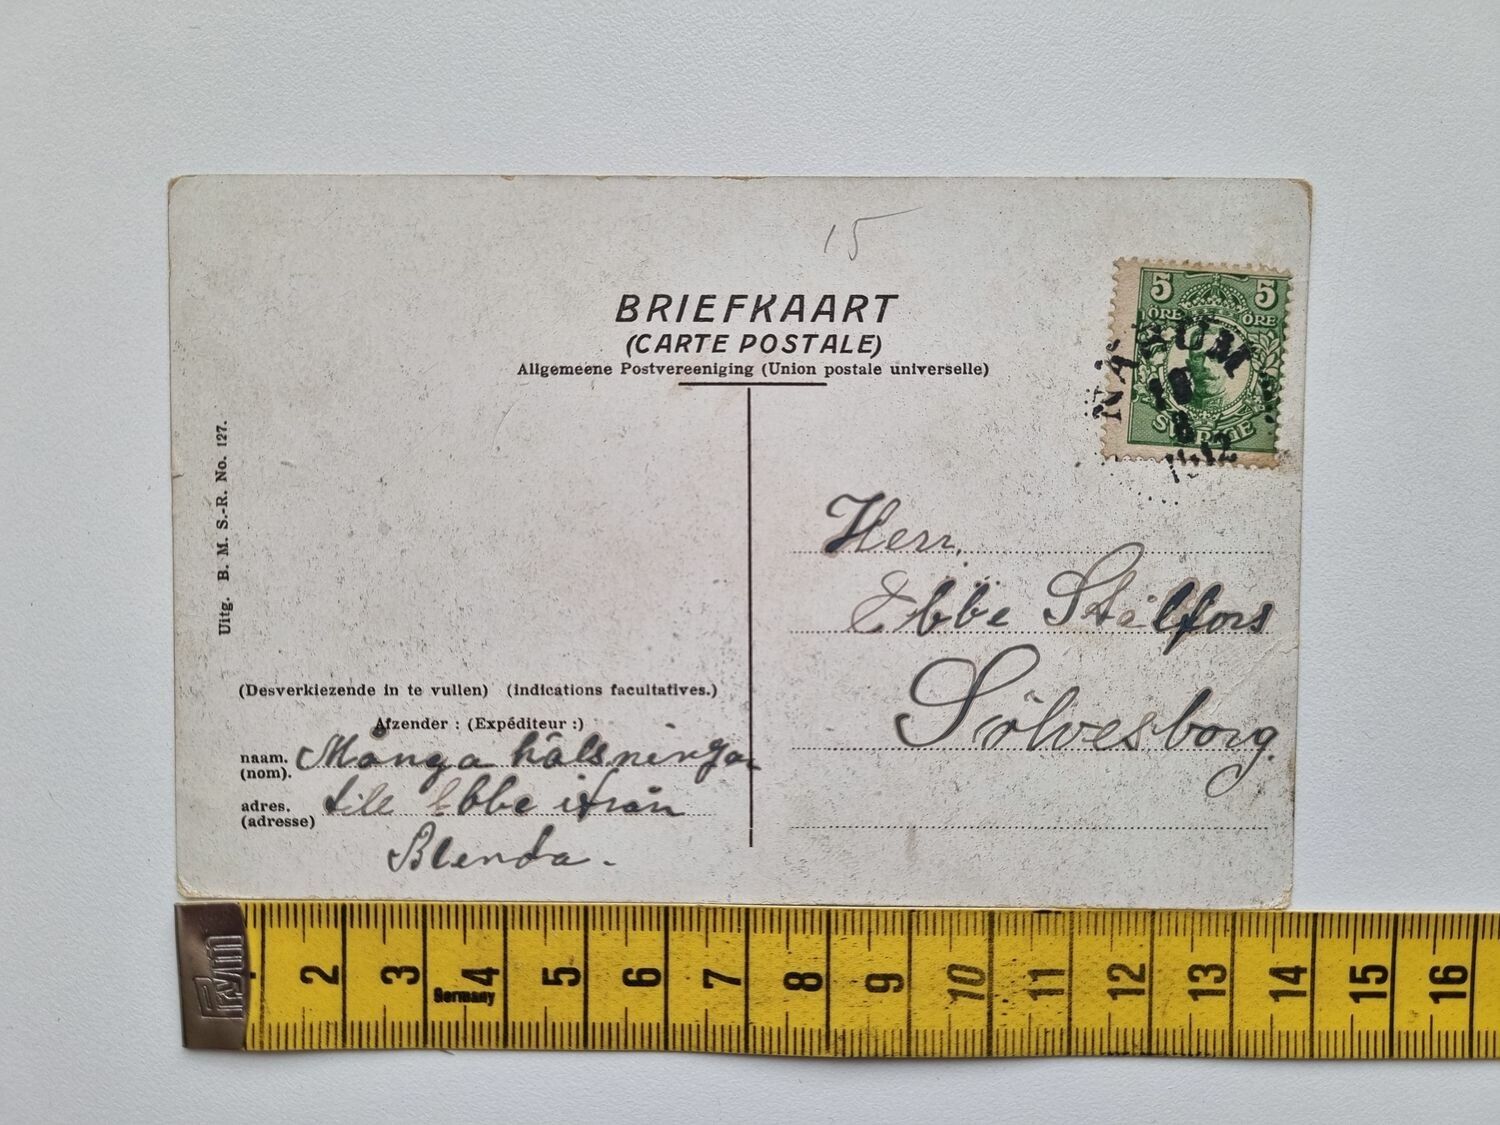 15
BRIEFKAART
(CARTE POSTALE)
Allgemeene Postvereeniging (Union postale universelle)
5 5
ÖRE ÖRE
SVERIGE
NÄSUM
1912
Uitg. B. M. S.-R. No. 127.
Herr.
Ebbe Stålfors
Sölvesborg.
(Desverkiezende in te vullen) (indications facultatives.)
Afzender : (Expéditeur :)
naam. Många hälsningar
(nom).
adres. till Ebbe ifrån
(adresse)
Blenda.
Prym
2 3 4 5 6 7 8 9 10 11 12 13 14 15 16
Germany